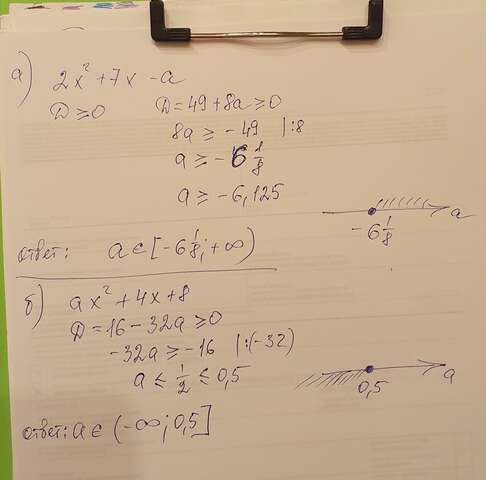 а) 2x² + 7x - a
D ≥ 0 D = 49 + 8a ≥ 0
8a ≥ -49 |:8
a ≥ -6 1/8
a ≥ -6,125
a
-6 1/8
ответ: a ∈ [-6 1/8; +∞)
б) ax² + 4x + 8
D = 16 - 32a ≥ 0
-32a ≥ -16 |:(-32)
a ≤ 1/2 ≤ 0,5
a
0,5
ответ: a ∈ (-∞; 0,5]